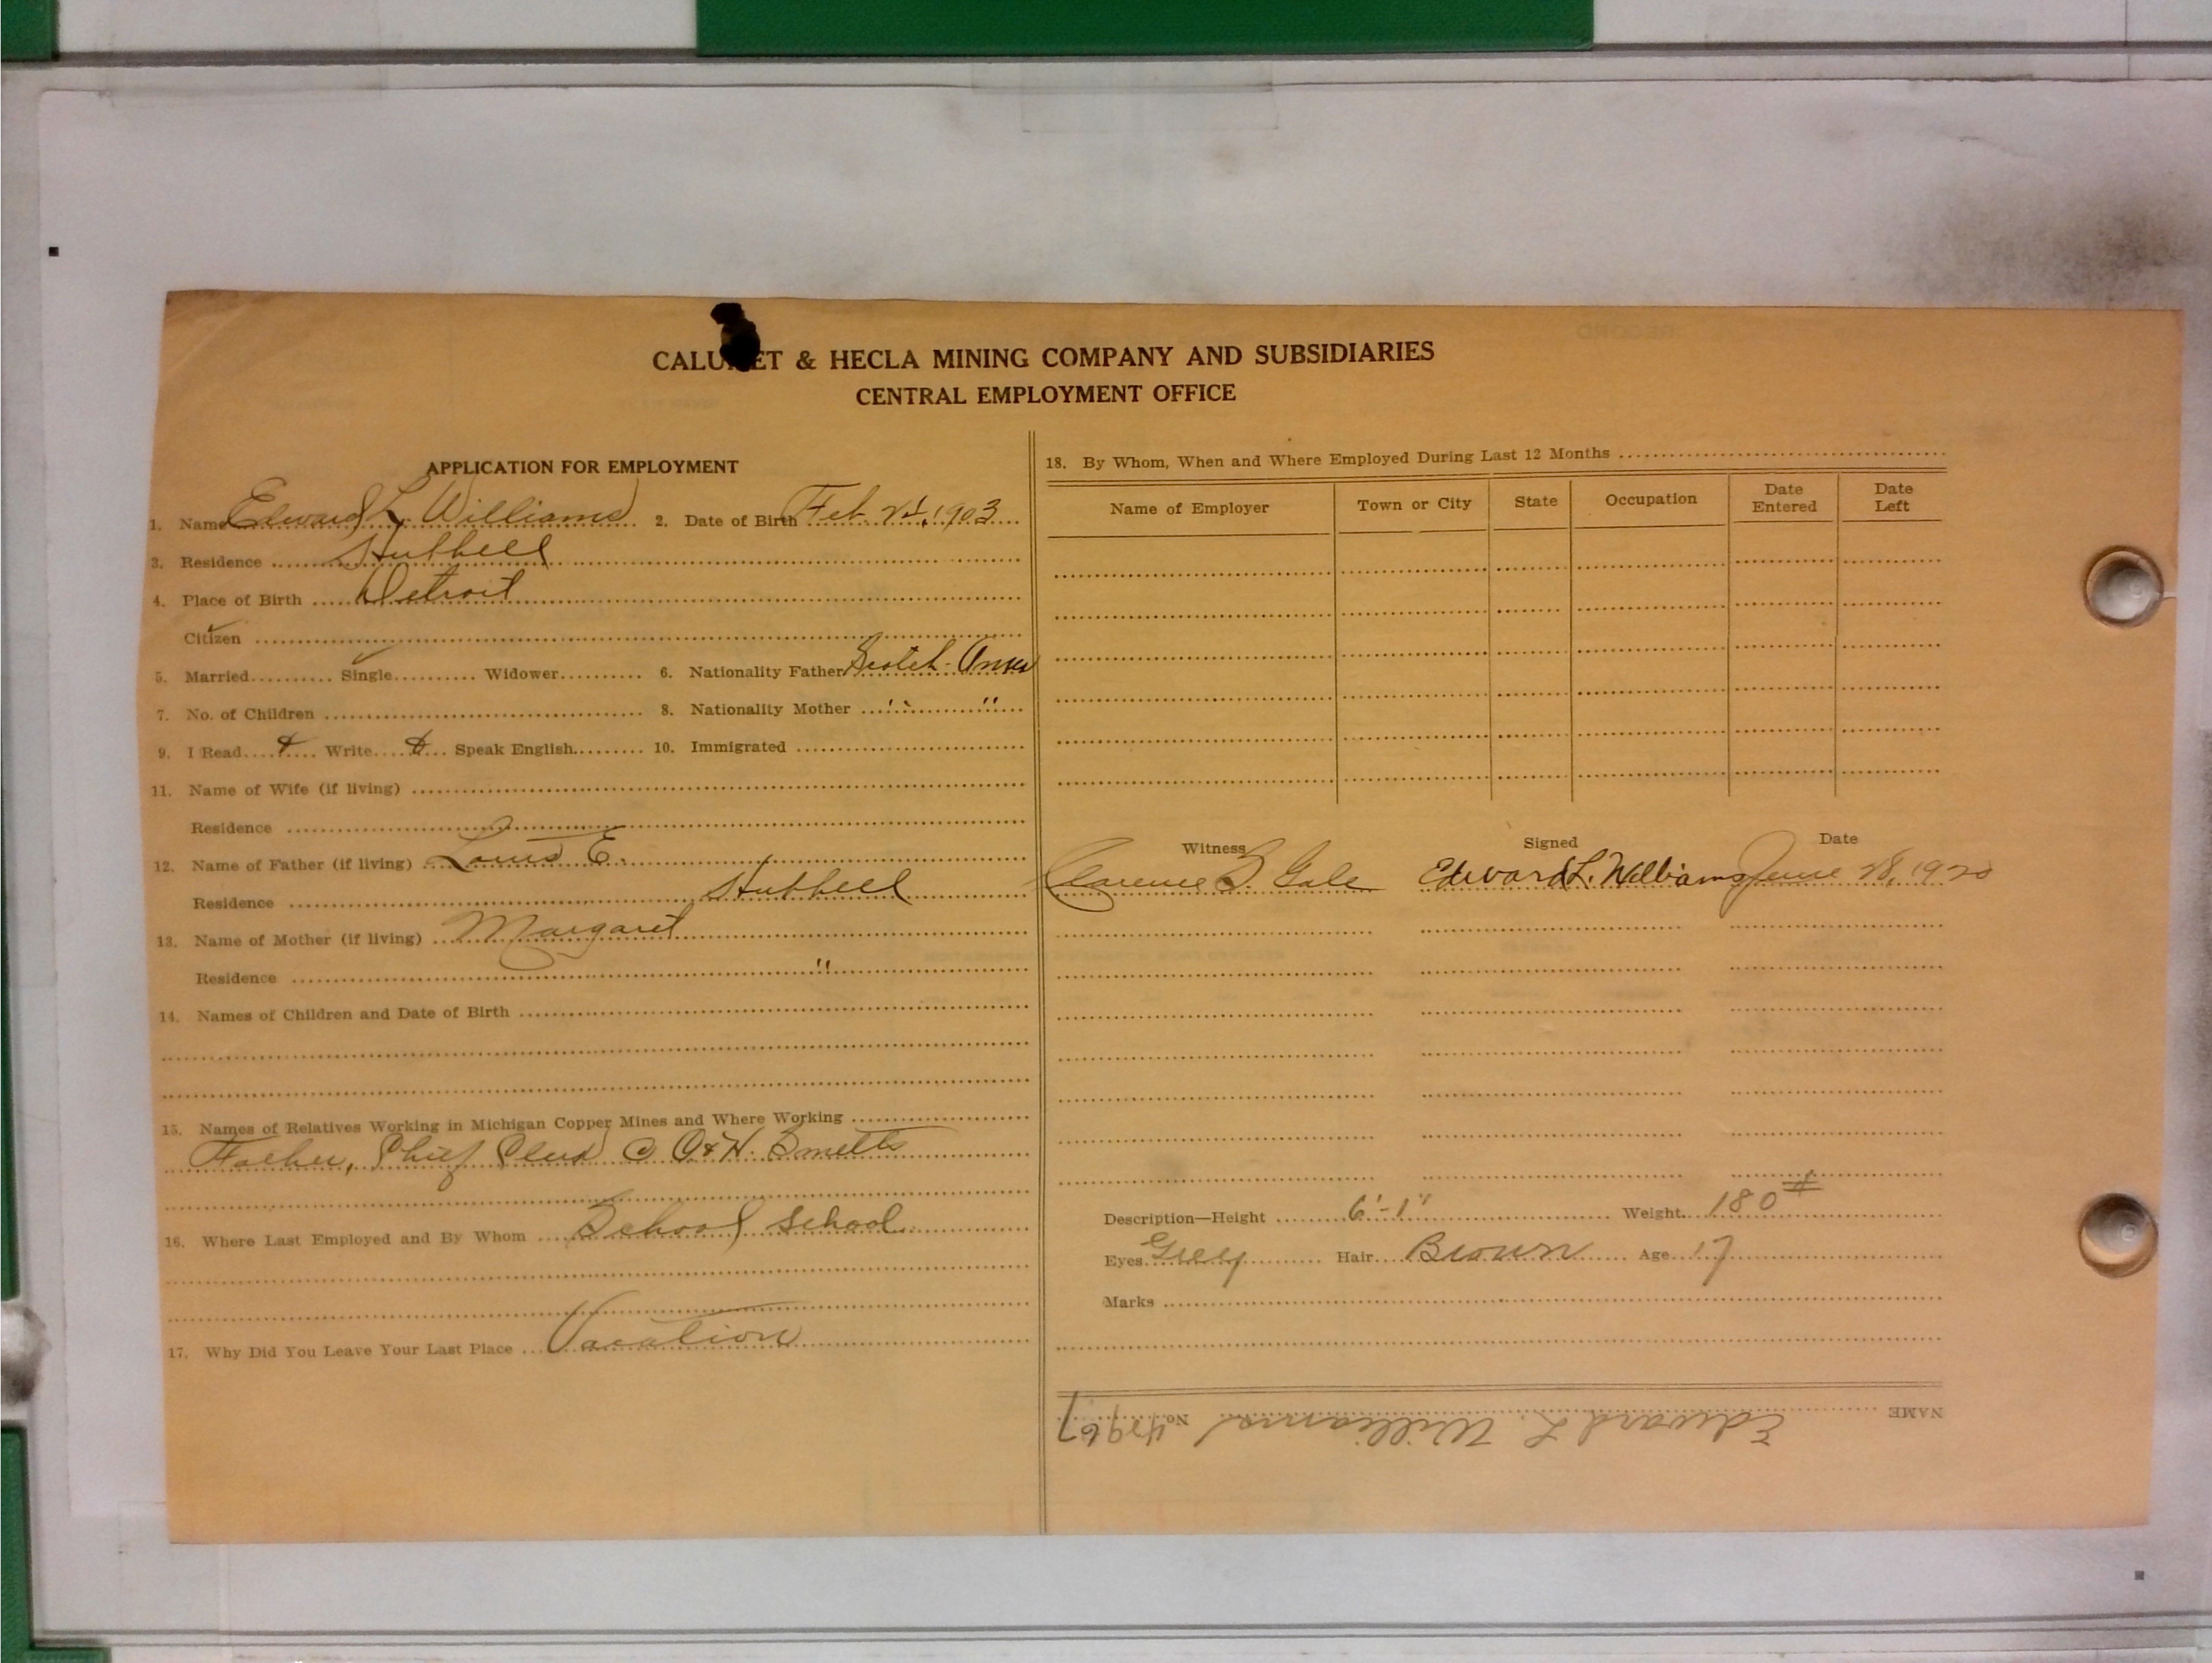 CALUMET & HECLA MINING COMPANY AND SUBSIDIARIES
CENTRAL EMPLOYMENT OFFICE
APPLICATION FOR EMPLOYMENT
1. Name Edward L. Williams 2. Date of Birth Feb. 1903
3. Residence Hubbell
4. Place of Birth Detroit
Citizen
5. Married Single Widower 6. Nationality Father Scotch-Amer
7. No. of Children 8. Nationality Mother " "
9. I Read Write Speak English 10. Immigrated
11. Name of Wife (if living)
Residence
12. Name of Father (if living) Louis E.
Residence Hubbell
13. Name of Mother (if living) Margaret
Residence "
14. Names of Children and Date of Birth
15. Names of Relatives Working in Michigan Copper Mines and Where Working
Father, Chief Clerk @ C & H. Smelts
16. Where Last Employed and By Whom School School
17. Why Did You Leave Your Last Place Vacation
18. By Whom, When and Where Employed During Last 12 Months
Name of Employer Town or City State Occupation Date Entered Date Left
Witness Signed Date
Clarence Gale Edward L. Williams June 28, 1920
Description—Height 6'-1" Weight 180 #
Eyes Grey Hair Brown Age 17
Marks
NAME Edward L. Williams No. 42967